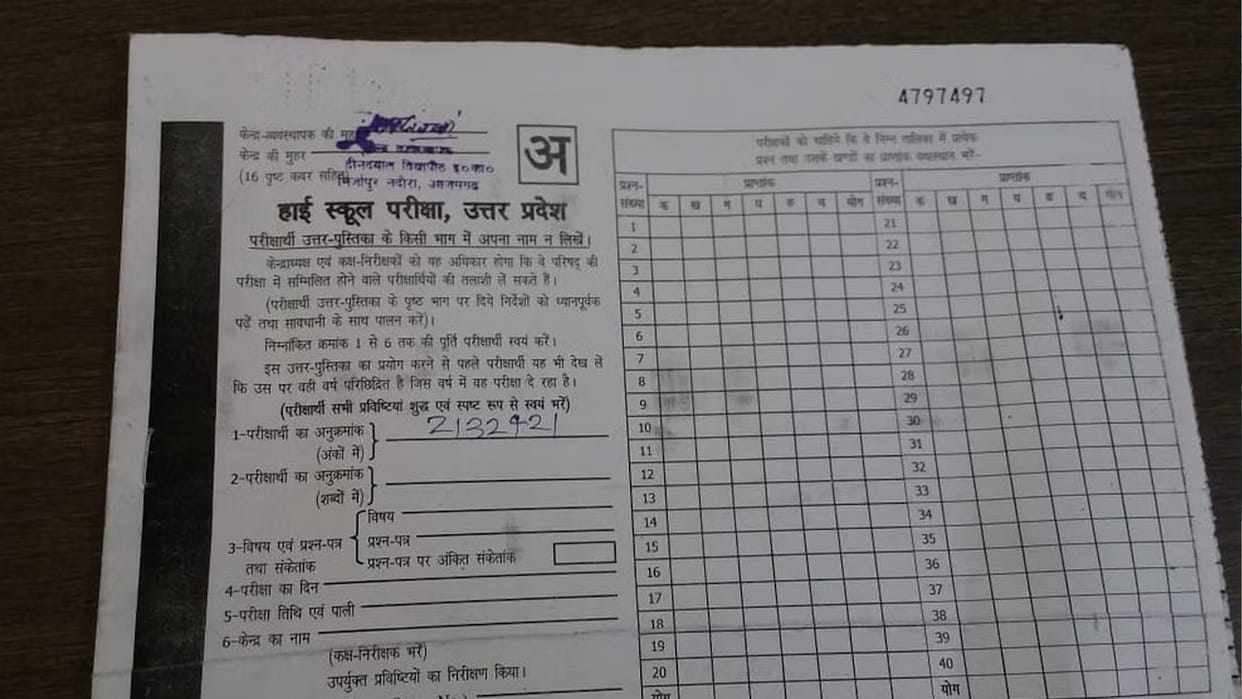 4797497
केन्द्र-व्यवस्थापक की मुहर
केन्द्र की मुहर
दीनदयाल विद्यापीठ इ०का०
(16 पृष्ठ कवर सहित)
मिर्जापुर नदौरा, आजमगढ़
अ
हाई स्कूल परीक्षा, उत्तर प्रदेश
परीक्षार्थी उत्तर-पुस्तिका के किसी भाग में अपना नाम न लिखें।
केन्द्राध्यक्ष एवं कक्ष-निरीक्षकों को यह अधिकार होगा कि वे परिषद् की
परीक्षा में सम्मिलित होने वाले परीक्षार्थियों की तलाशी ले सकते हैं।
(परीक्षार्थी उत्तर-पुस्तिका के पृष्ठ भाग पर दिये निर्देशों को ध्यानपूर्वक
पढ़ें तथा सावधानी के साथ पालन करें)।
निम्नांकित क्रमांक 1 से 6 तक की पूर्ति परीक्षार्थी स्वयं करें।
इस उत्तर-पुस्तिका का प्रयोग करने से पहले परीक्षार्थी यह भी देख लें
कि उस पर वही वर्ष परिछिद्रित है जिस वर्ष में वह परीक्षा दे रहा है।
(परीक्षार्थी सभी प्रविष्टियां शुद्ध एवं स्पष्ट रूप से स्वयं भरें)
1-परीक्षार्थी का अनुक्रमांक 2132421
(अंकों में)
2-परीक्षार्थी का अनुक्रमांक
(शब्दों में)
विषय
3-विषय एवं प्रश्न-पत्र प्रश्न-पत्र
तथा संकेतांक प्रश्न-पत्र पर अंकित संकेतांक
4-परीक्षा का दिन
5-परीक्षा तिथि एवं पाली
6-केन्द्र का नाम
(कक्ष-निरीक्षक भरें)
उपर्युक्त प्रविष्टियों का निरीक्षण किया।
परीक्षकों को चाहिये कि वे निम्न तालिका में प्रत्येक
प्रश्न तथा उसके खण्डों का प्राप्तांक यथास्थान भरें-
प्रश्न- प्राप्तांक प्रश्न- प्राप्तांक
संख्या क ख ग घ ङ च योग संख्या क ख ग घ ङ च योग
1 21
2 22
3 23
4 24
5 25
6 26
7 27
8 28
9 29
10 30
11 31
12 32
13 33
14 34
15 35
16 36
17 37
18 38
19 39
20 40
योग योग